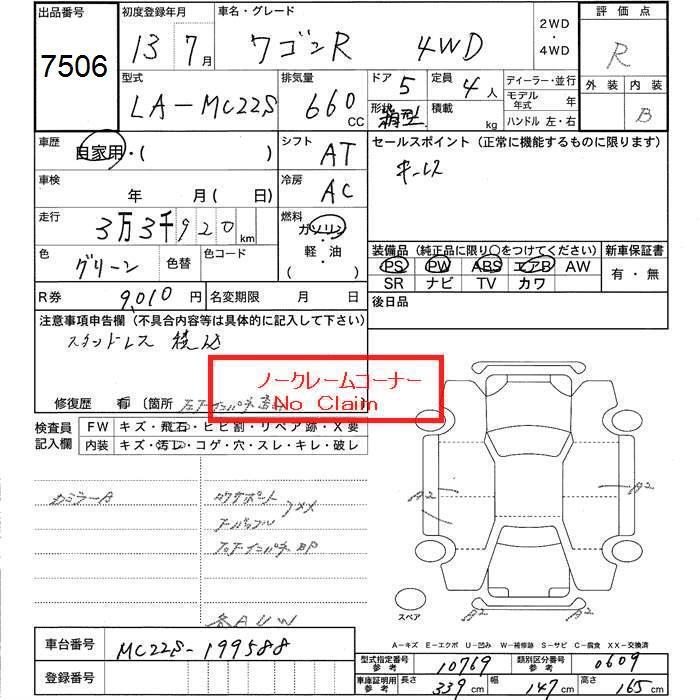 出品番号 初度登録年月 車名・グレード 2WD ・ 4WD 評価点
7506 13 7月 ワゴンR 4WD R
型式 排気量 ドア 5 定員 4人 ディーラー・並行 外装 内装
LA-MC22S 660 CC 形状 箱型 積載 kg モデル年式 年 B
ハンドル 左・右
車歴 自家用・( ) シフト AT セールスポイント (正常に機能するものに限ります)
車検 年 月(日) 冷房 AC キーレス
走行 3万3千920km 燃料 ガソリン・軽・油( )
色 グリーン 色替 色コード
装備品 (純正品に限り○をつけてください) 新車保証書
PS PW ABS エアB AW 有・無
SR ナビ TV カワ
R券 9,010円 名変期限 月 日 後日品
注意事項申告欄 (不具合内容等は具体的に記入して下さい)
スタッドレス 積込
ノークレームコーナー
No Claim
修復歴 有 〔箇所
検査員記入欄 FW キズ・飛石・ヒビ割・リペア跡・X要
内装 キズ・汚レ・コゲ・穴・スレ・キレ・破レ
カミラーA
A2 A2
各AUW
スペア
車台番号 MC22S-199588
A-キズ E-エクボ U-凹み W-補修跡 S-サビ C-腐食 XX-交換済
登録番号
型式指定番号 参考 10769 類別区分番号 参考 0609
車庫証明用 参考 長さ 339cm 幅 147cm 高さ 165cm